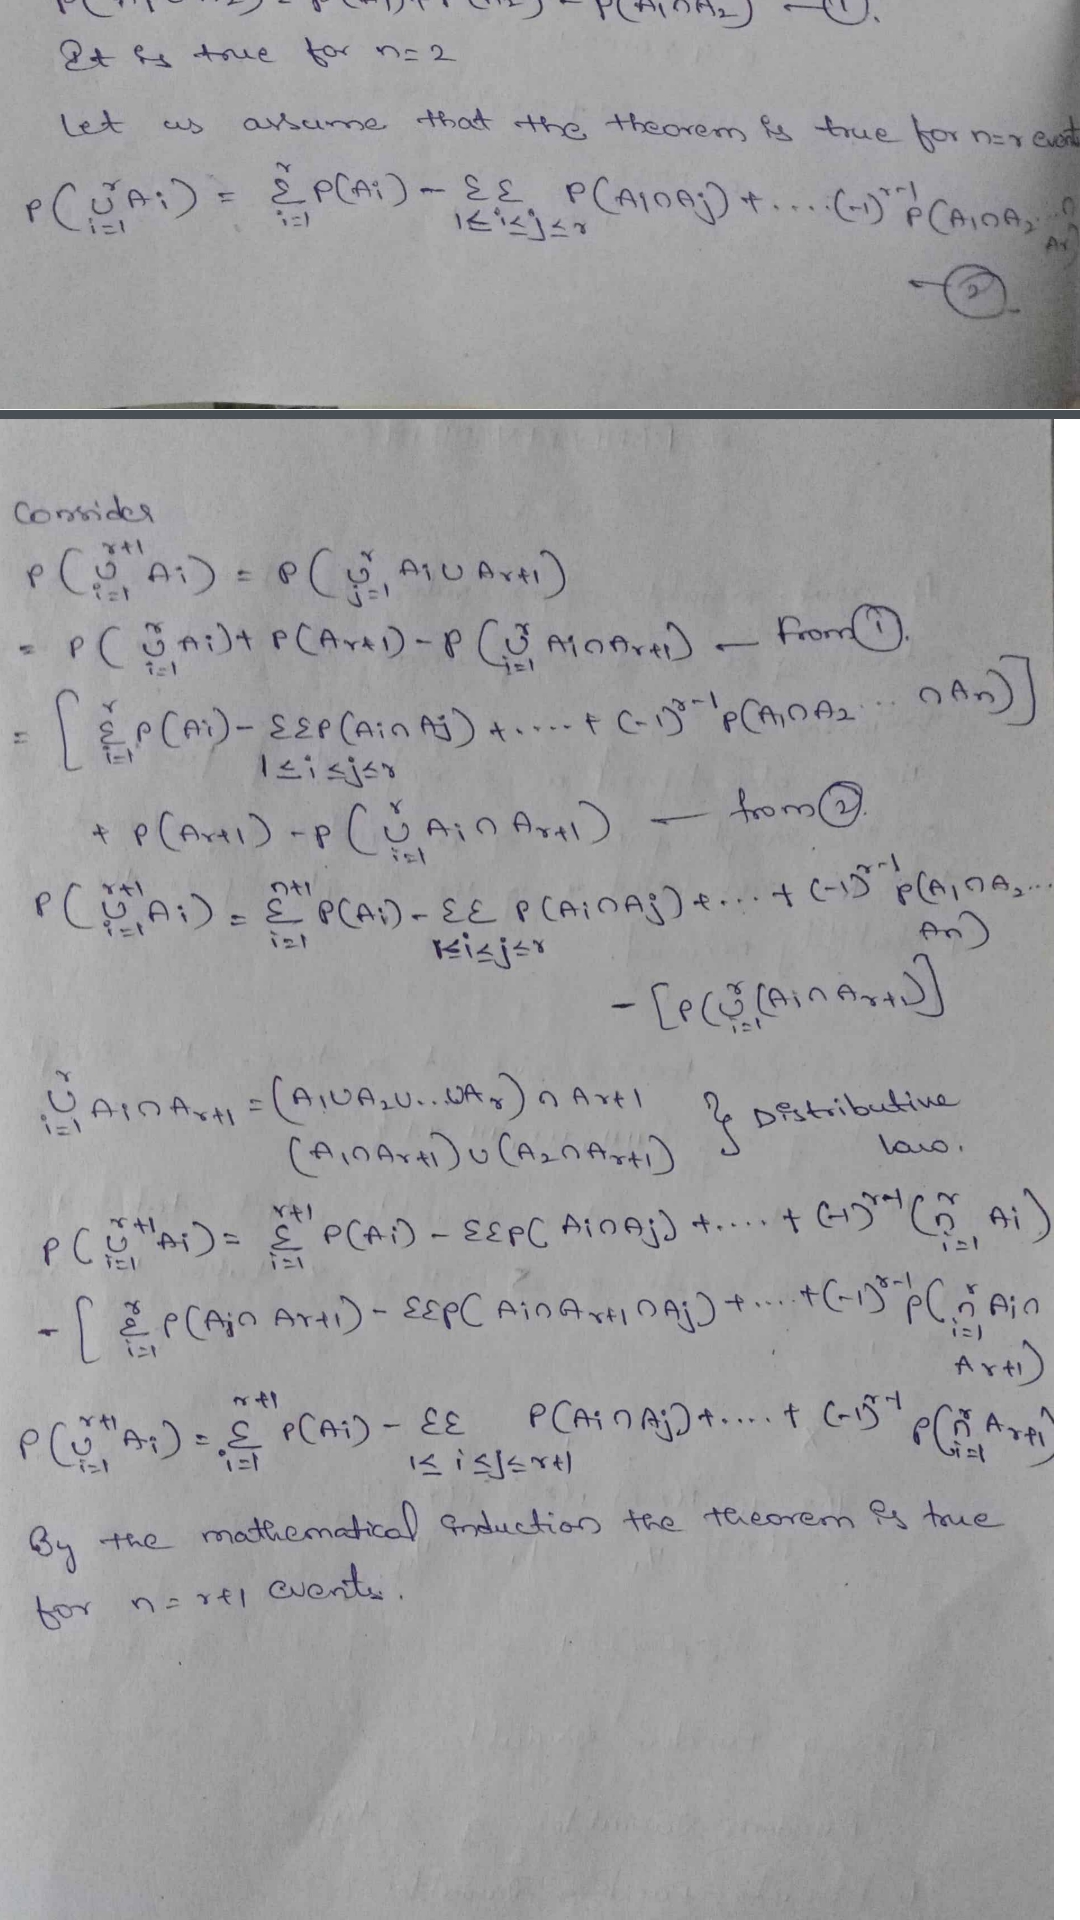 P(A₁∩A₂) — ①.
It is true for n=2
Let us assume that the theorem is true for n=r event
P(∪ʳᵢ₌₁ Ai) = Σʳᵢ₌₁ P(Ai) - ΣΣ 1≤i≤j≤r P(Ai∩Aj) + .... (-1)ʳ⁻¹ P(A₁∩A₂...∩Ar)
— ②.
Consider
P(∪ʳ⁺¹ᵢ₌₁ Ai) = P(∪ʳⱼ₌₁ Ai ∪ Ar+1)
= P(∪ʳᵢ₌₁ Ai) + P(Ar+1) - P(∪ʳᵢ₌₁ Ai∩Ar+1) — From ①.
= [Σʳᵢ₌₁ P(Ai) - ΣΣ P(Ai∩Aj) 1≤i≤j≤r + ..... + (-1)ʳ⁻¹ P(A₁∩A₂ ... ∩An)]
+ P(Ar+1) - P(∪ʳᵢ₌₁ Ai∩Ar+1) — from ②.
P(∪ʳ⁺¹ᵢ₌₁ Ai) = Σⁿ⁺¹ᵢ₌₁ P(Ai) - ΣΣ 1≤i≤j≤r P(Ai∩Aj) + ... + (-1)ʳ⁻¹ P(A₁∩A₂... An)
- [P(∪ʳᵢ₌₁ (Ai∩Ar+1)]
∪ʳᵢ₌₁ Ai∩Ar+1 = (A₁∪A₂∪...∪Ar) ∩ Ar+1 } Distributive
(A₁∩Ar+1)∪(A₂∩Ar+1) law.
P(∪ʳ⁺¹ᵢ₌₁ Ai) = Σʳ⁺¹ᵢ₌₁ P(Ai) - ΣΣP(Ai∩Aj) + .... + (-1)ʳ⁻¹ (∩ʳᵢ₌₁ Ai)
- [Σʳᵢ₌₁ P(Aj∩Ar+1) - ΣΣP(Ai∩Ar+1∩Aj) + .... + (-1)ʳ⁻¹ P(∩ʳᵢ₌₁ Ai∩
Ar+1)
P(∪ʳ⁺¹ᵢ₌₁ Ai) = Σʳ⁺¹ᵢ₌₁ P(Ai) - ΣΣ 1≤i≤j≤r+1 P(Ai∩Aj) + .... + (-1)ʳ⁻¹ P(∩ʳᵢ₌₁ Ar+1)
By the mathematical induction the theorem is true
for n=r+1 events.